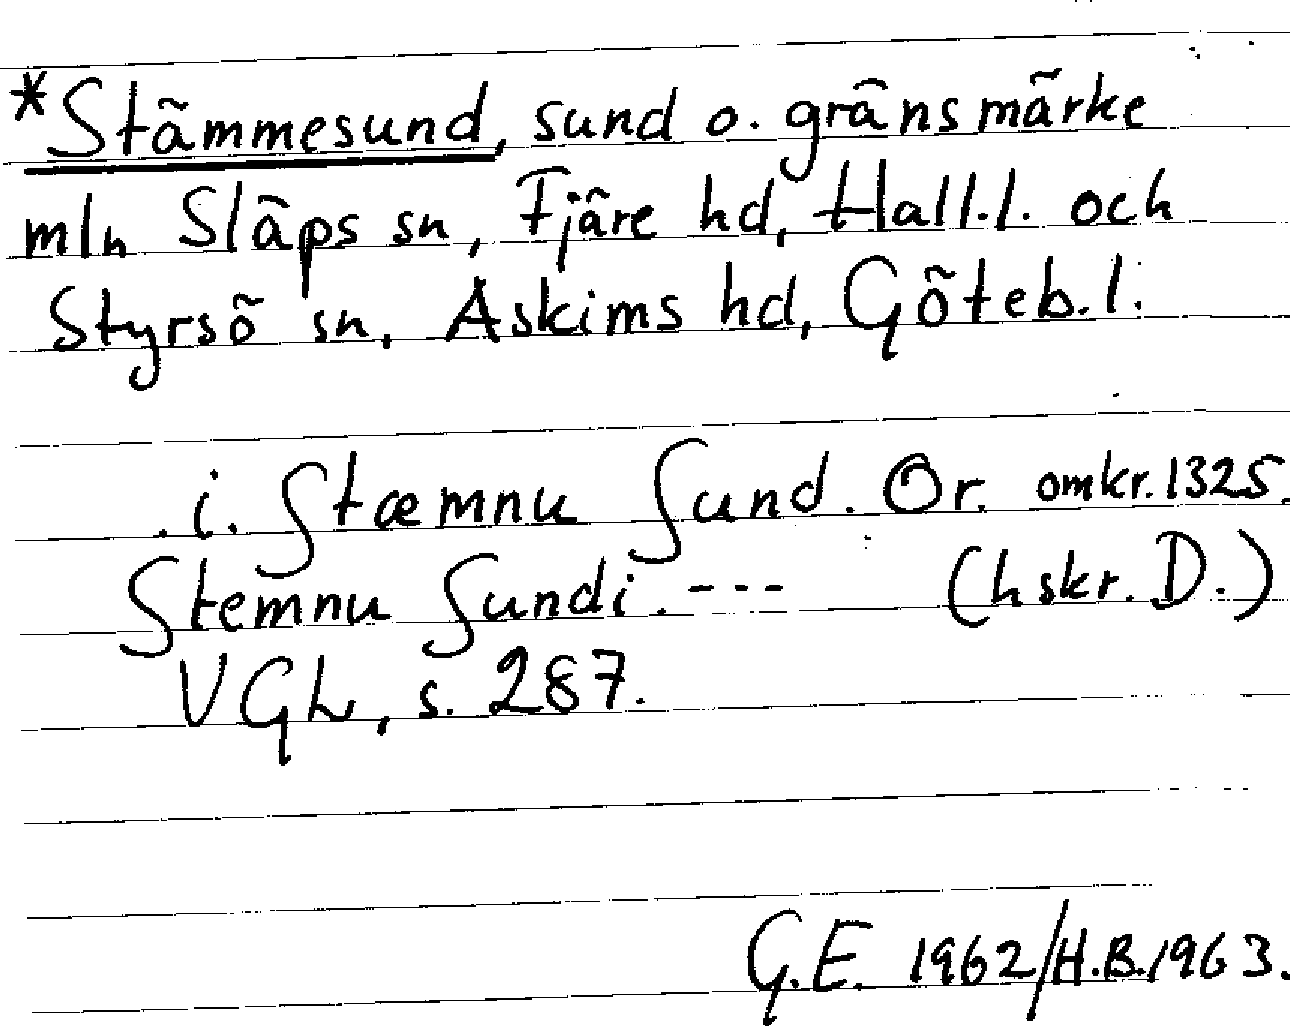 *Stämmesund, sund o. gränsmärke
mln Släps sn, Fjäre hd, Hall.l. och
Styrsö sn, Askims hd, Göteb.l.
.i. ſtæmnu ſund. Or. omkr. 1325.
ſtemnu ſundi. --- (hskr. D.)
VGL, s. 287.
G.E. 1962/H.B. 1963.